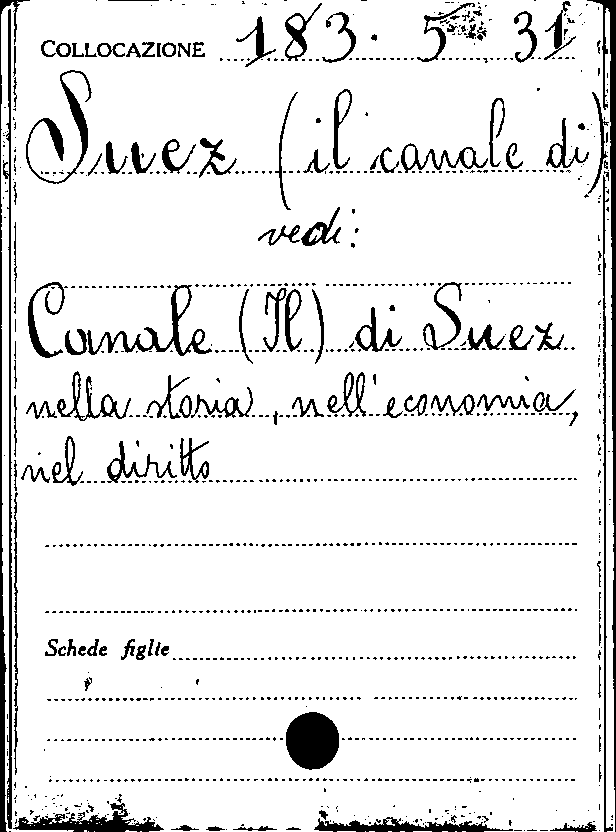 COLLOCAZIONE 183. 5 31
Suez (il canale di)
vedi:
Canale (Il) di Suez
nella storia, nell'economia,
nel diritto
Schede figlie